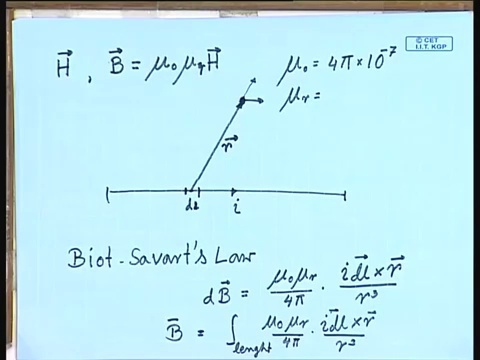 © CET
I.I.T. KGP
H⃗ , B⃗ = μ₀μᵣH⃗
μ₀ = 4π×10⁻⁷
μᵣ =
r⃗
dl i
Biot-Savart's Law
dB⃗ = μ₀μᵣ/4π · i dl⃗ × r⃗/r³
B̄ = ∫lenght μ₀μᵣ/4π · i dl⃗ × r⃗/r³